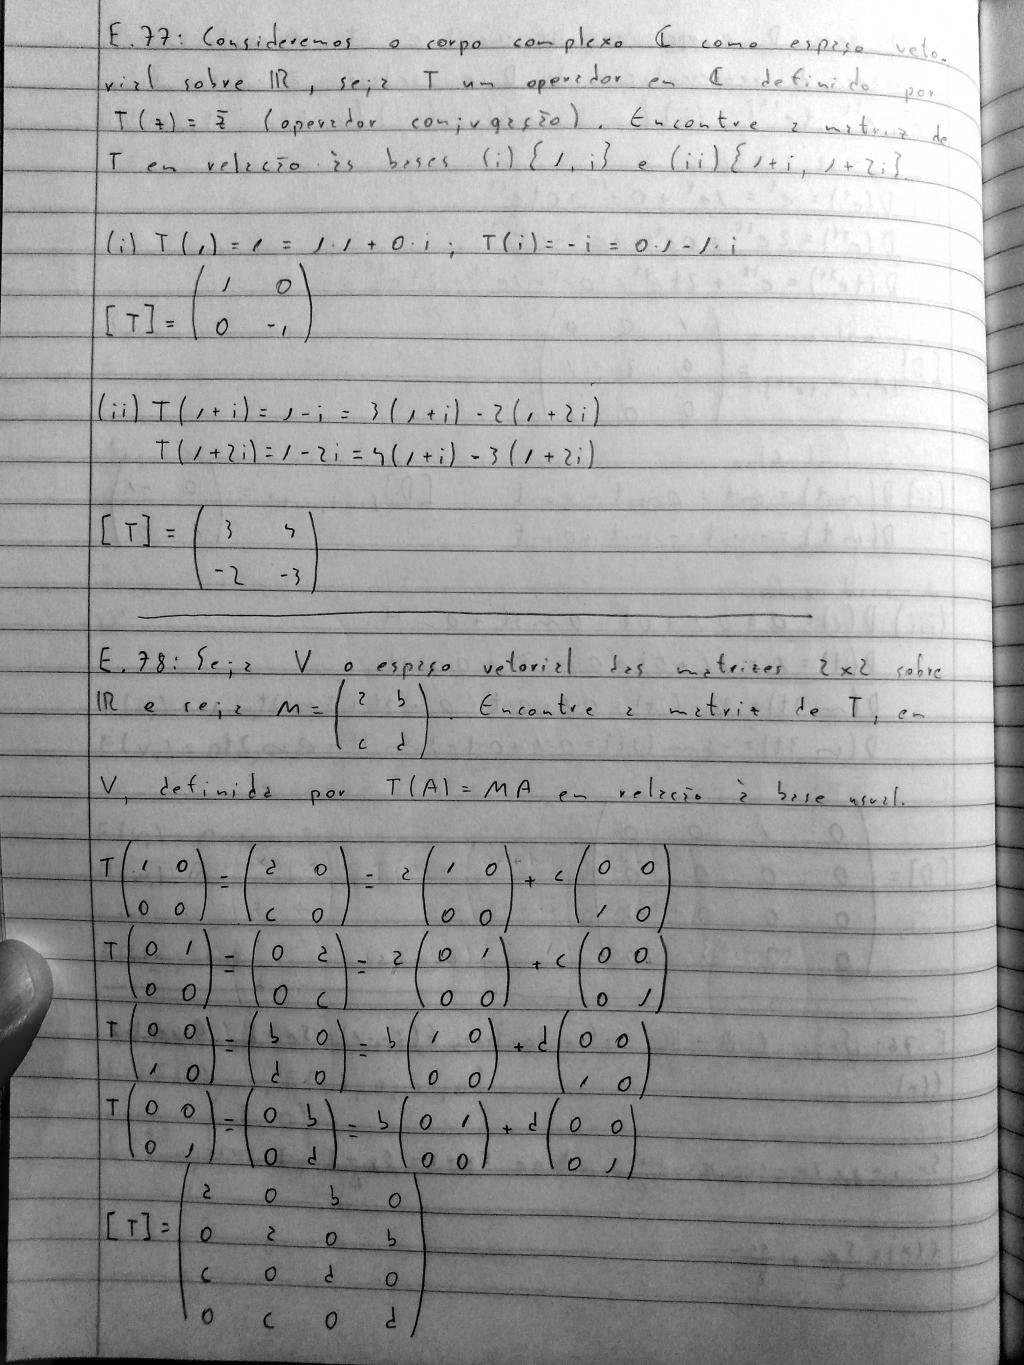 E.77: Consideremos o corpo complexo ℂ como espaço veto-
rial sobre IR, seja T um operador em ℂ definido por
T(z) = z̄ (operador conjugação). Encontre a matriz de
T em relação às bases (i) {1, i} e (ii) {1+i, 1+2i}
(i) T(1) = 1 = 1·1 + 0·i ; T(i) = -i = 0·1 - 1·i
[T] = ( 1 0
0 -1 )
(ii) T(1+i) = 1-i = 3(1+i) - 2(1+2i)
T(1+2i) = 1-2i = 4(1+i) - 3(1+2i)
[T] = ( 3 4
-2 -3 )
E.78: Seja V o espaço vetorial das matrizes 2x2 sobre
IR e seja M = ( a b
c d ) . Encontre a matriz de T, em
V, definida por T(A) = MA em relação à base usual.
T ( 1 0
0 0 ) = ( a 0
c 0 ) = a ( 1 0
0 0 ) + c ( 0 0
1 0 )
T ( 0 1
0 0 ) = ( 0 a
0 c ) = a ( 0 1
0 0 ) + c ( 0 0
0 1 )
T ( 0 0
1 0 ) = ( b 0
d 0 ) = b ( 1 0
0 0 ) + d ( 0 0
1 0 )
T ( 0 0
0 1 ) = ( 0 b
0 d ) = b ( 0 1
0 0 ) + d ( 0 0
0 1 )
[T] = ( a 0 b 0
0 a 0 b
c 0 d 0
0 c 0 d )